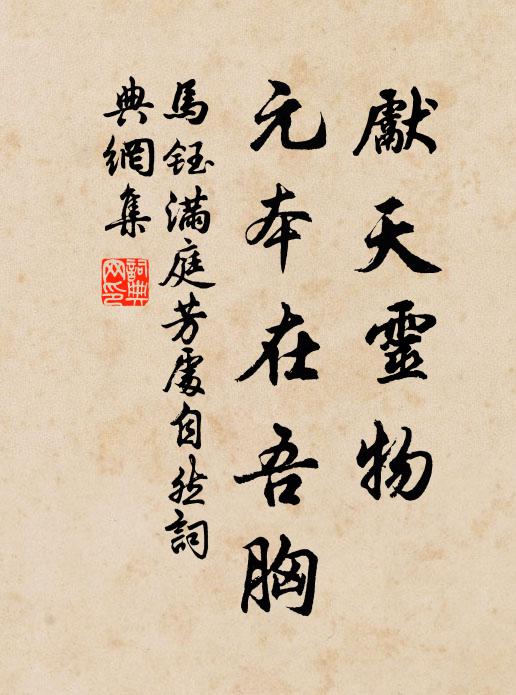 獻天靈物
元本在吾胸
馬鈺滿庭芳處自然詞
典網集
詞典
网印